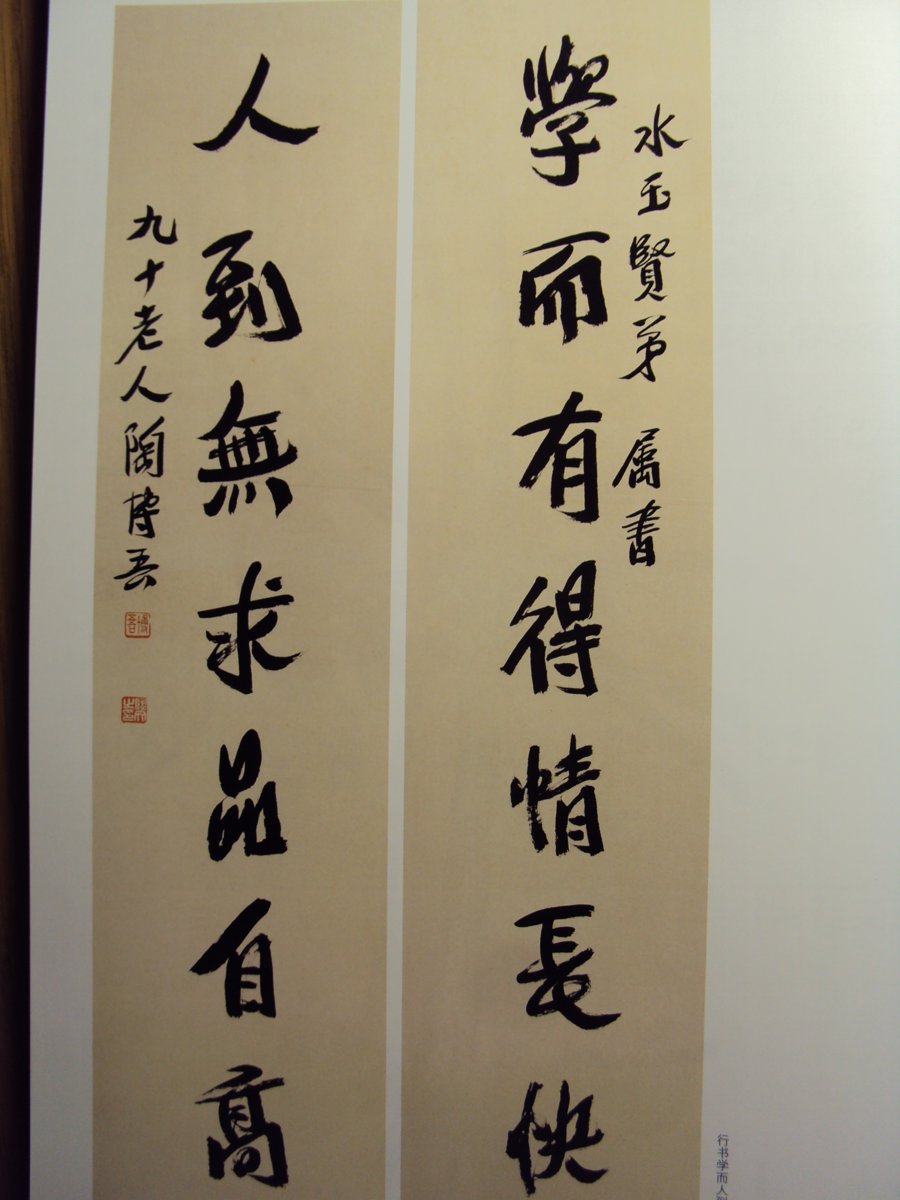 水玉賢弟 属書
學而有得情長快
人到無求品自高
九十老人陶博吾
行书学而人到